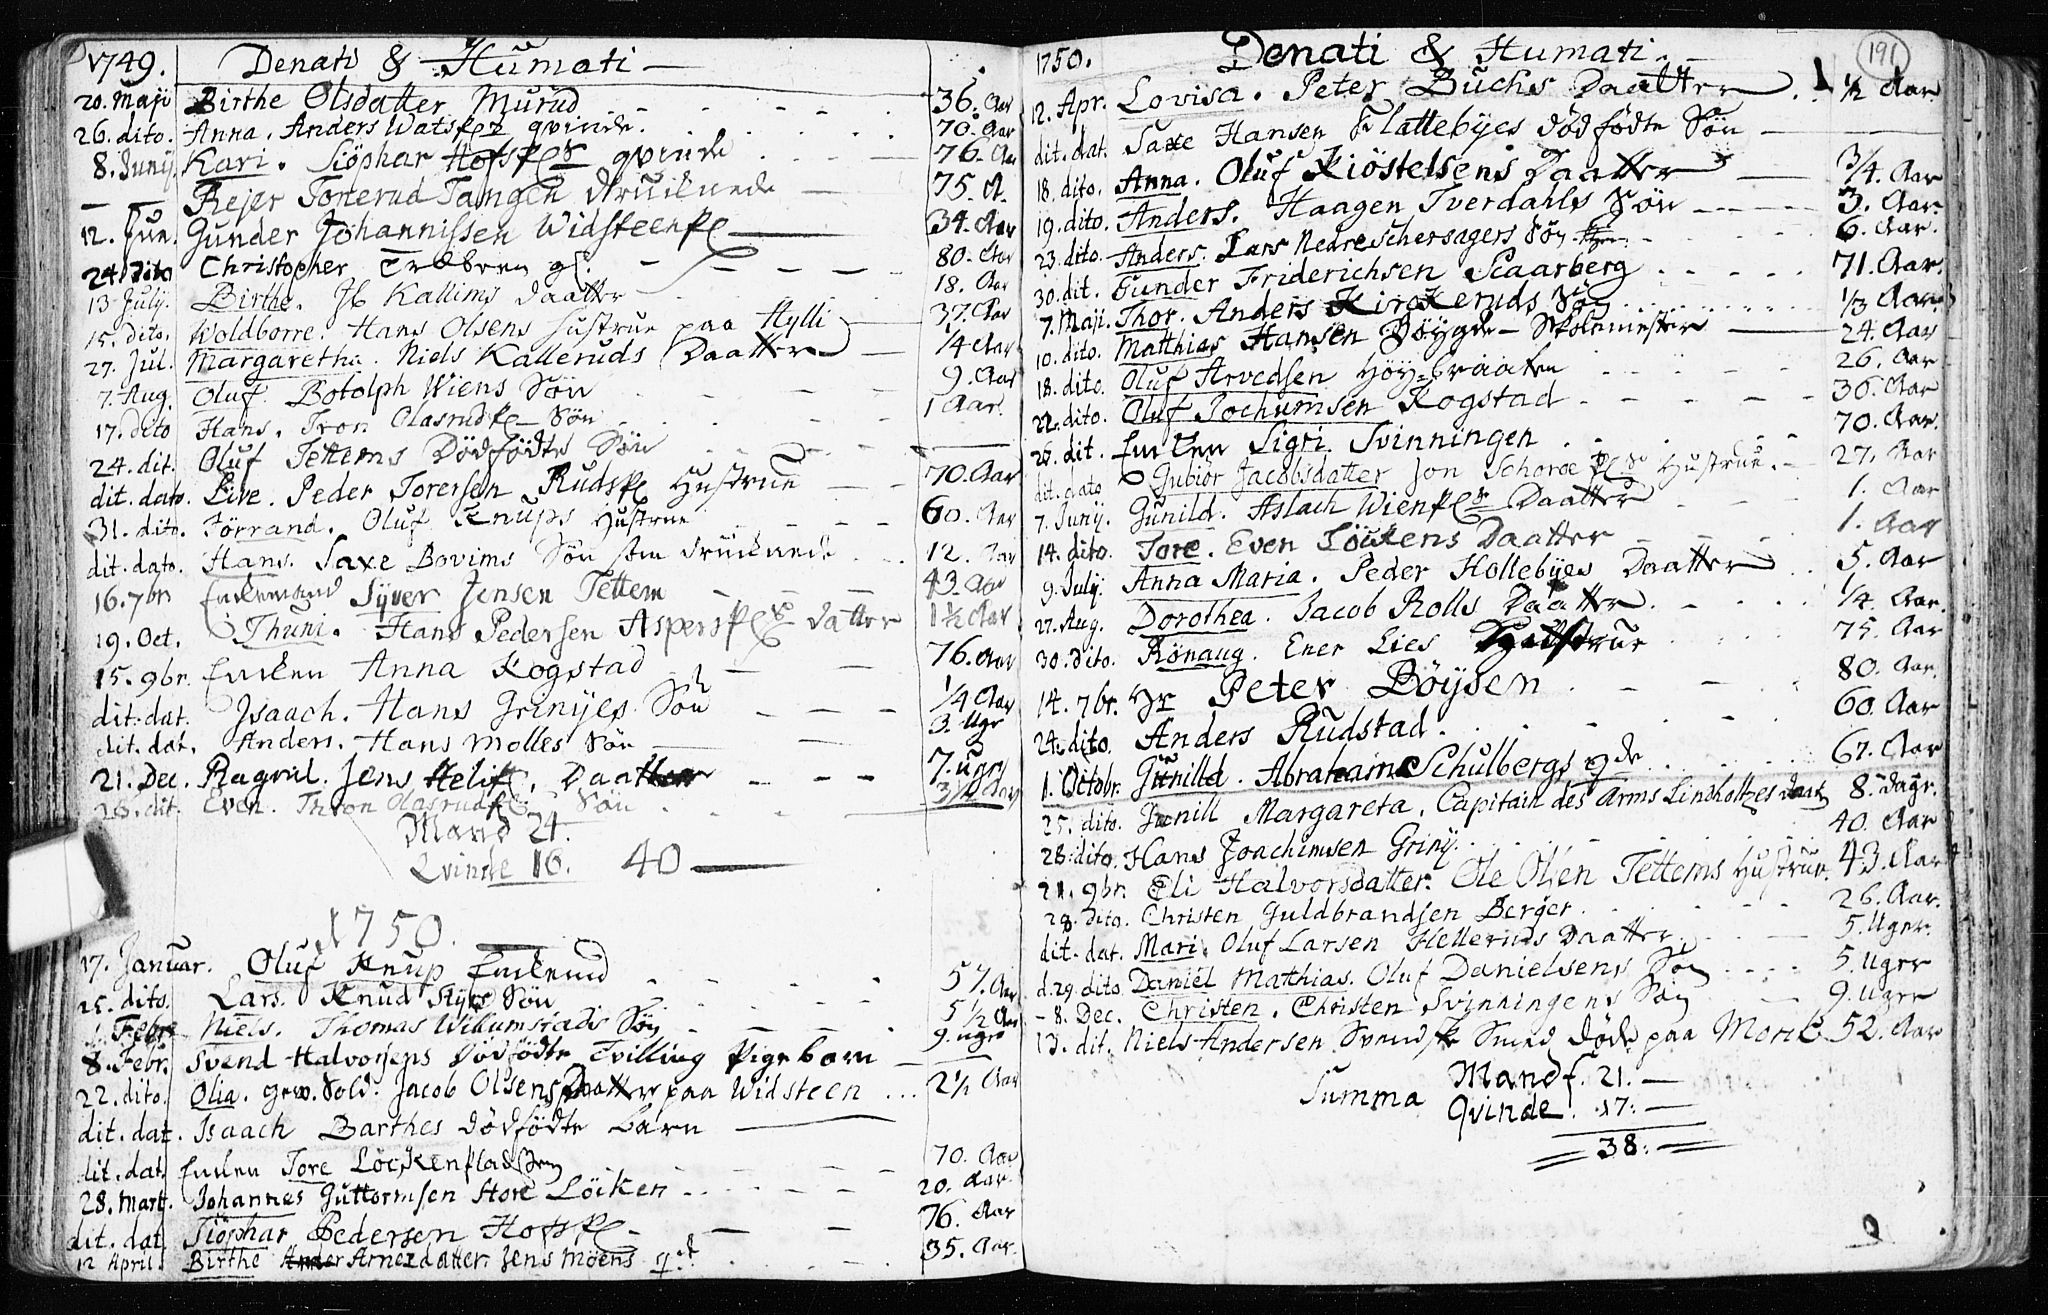 1749. Denati & Humati
20. Maji Birthe Olsdatter Murud 36. Aar
26. dito. Anna. Anders Watspl qvinde. 70. Aar
8. Junij. Kari. Siöphar Hofspl qvinde 76. Aar
Rejer Torerud Tangen druknede 75. A.
12. Jun. Gunder Johannissen Widsteenpl 34. Aar
24. dito Christopher gl. 80. Aar
13 July. Birthe. Jb Kallims Daatter 18. Aar
15. dito. Woldborre. Hans Olsens hustrue paa Hylli 37. Aar
27. Jul. Margaretha. Niels Kalleruds Daatter 1/4 Aar
7. Aug. Oluf. Botolph Wiens Sön 9. Aar
17. dito Hans. Tron Olasrudpl Sön 1 Aar.
24. dit. Oluf Tettems Dödfödte Sön
dit. dato. Live. Peder Torersen Rudspl Hustrue 70. Aar
31. dito. Törrand. Oluf Knups Hustrue 60. Aar
dit. dato. Hans. Saxe Bovims Sön som druknede 12. Aar
16. 7br Enkemand Syver Jensen Tettem 43. Aar
19. Oct. Thuni. Hans Pedersen Asperspl datter 1 1/2 Aar
15. 9br. Enken Anna Kogstad 76. Aar
dit. dat. Isaach. Hans Grinijes Sön 1/4 Aar
dit. dat. Anders. Hans Molles Sön 3. Ugr
21. Dec. Ragnil. Jens Helispl. Daatter 7. ugr
28. dit. Even. Thron Olasrudpl Sön 3/4 Aar
Mand 24.
Qvinde 16. 40
1750.
17. Januar. Oluf Knup Enkemd 57. Aar
25. dito. Lars. Knud Styrs Sön 5 1/2 Aar
1. Febr Niels. Thomas Willumstads Sön 9. ugr
8. Febr. Svend Halvorsens Dödfödte Tvilling Pigebarn
22. dito. Olia. gev. Sold. Jacob Olsens Daatter paa Widsteen 2 1/2 Aar
dit. dat. Isaach Barthes dödfödte barn
dit. dat. Enken Tore Löckenpladsen 70. Aar
28. Mart. Johannes Guttormsen Store Löiken 20. Aar.
dit. dat. Siöphar Pedersen Hofspl 76. Aar
12 April Birthe Arnesdatter. Jens Moens qd. 35. Aar.
1750. Denati & Humati. 191
12. Apr. Lovisa. Peter Buchs Daatter 1 1/2 Aar
dit. dat. Saxe Hansen Flattebyes dödfödte Sön
18. dito. Anna. Oluf Kiöstelsens Daatter 3/4. Aar
19. dito. Anders. Haagen Tverdahls Sön 3. Aar.
23. dito. Anders. Lars Nedre Schersagers Sön 6. Aar.
30. dit. Gunder Friderichsen Scaarberg 71. Aar.
7. Maji. Thor. Anders Kirckeruds Sön 1/3 Aar
10. dito. Matthias Hansen Döygde Skolemester 24. Aar
18. dito. Oluf Arvedsen Höybraaten 26. Aar
22. dito. Oluf Jochumsen Kogstad 36. Aar
26. dit. Enken Sigri Svinningen 70. Aar.
dit. dato Gubiör Jacobsdatter Jon Schoroe pl Hustrue. 27. Aar
7. Junij. Gunild. Aslach Wienpl Daatter 1. Aar
14. dito. Tore. Even Löikens Daatter 1. Aar
9. July. Anna Maria. Peder Hollebyes Daatter 5. Aar
27. Aug. Dorothea. Jacob Rolls Daatter. 1/4. Aar.
30. dito. Rönaug. Ener Lies Hustrue 75. Aar
14. 7br. Hr Peter Böysen 80. Aar.
24. dito. Anders Rudstad. 60. Aar
1. Octobr. Gunilld. Abraham Schulbergs qde 67. Aar
25. dito. Gunill Margareta. Capitain des Arms Lindholtzes daat 8. dagr.
28. dito. Hans Joachimsen Griny. 40. Aar
21. 9br. Eli Halvorsdatter. Ole Olsen Tettems Hustrue. 43. Aar
28. dito. Christen Guldbrandsen Berger. 26. Aar.
dit. dat. Mari. Oluf Larsen Helleruds Daatter. 5. Uger.
d. 29. dito. Daniel Mathias. Oluf Danielsens Sön 5. Uger
8. Dec. Christen. Christen Svinningens Sön 9. Uger
13. dit. Niels Andersen Svendske Smed döde paa Morck 52. Aar
Summa Mandf. 21.
Qvinde. 17.
38.